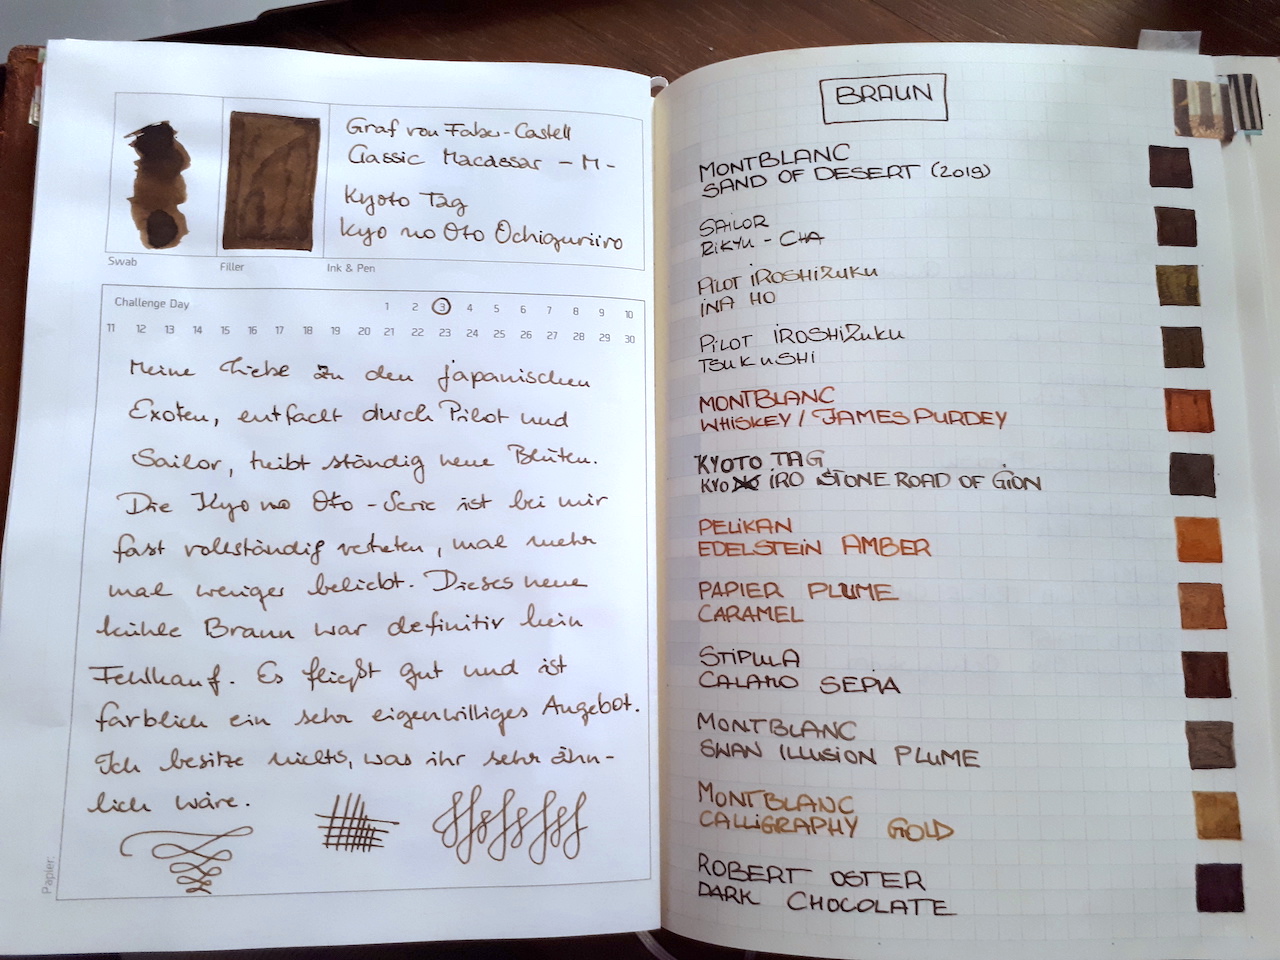 Graf von Faber-Castell
Classic Macassar - M -
Kyoto Tag
Kyo no Oto Ochiguriiro
Swab
Filler
Ink & Pen
Challenge Day
1 2 3 4 5 6 7 8 9 10
11 12 13 14 15 16 17 18 19 20 21 22 23 24 25 26 27 28 29 30
Meine Liebe zu den japanischen
Exoten, entfacht durch Pilot und
Sailor, treibt ständig neue Blüten.
Die Kyo no Oto - Serie ist bei mir
fast vollständig vertreten, mal mehr
mal weniger beliebt. Dieses neue
kühle Braun war definitiv kein
Fehlkauf. Es fließt gut und ist
farblich ein sehr eigenwilliges Angebot.
Ich besitze nichts, was ihr sehr ähn-
lich wäre.
Papier:
BRAUN
MONTBLANC
SAND OF DESERT (2019)
SAILOR
RIKYU - CHA
PILOT IROSHIZUKU
INA HO
PILOT IROSHIZUKU
TSUKUSHI
MONTBLANC
WHISKEY / JAMES PURDEY
KYOTO TAG
KYO IRO STONE ROAD OF GION
PELIKAN
EDELSTEIN AMBER
PAPIER PLUME
CARAMEL
STIPULA
CALAMO SEPIA
MONTBLANC
SWAN ILLUSION PLUME
MONTBLANC
CALLIGRAPHY GOLD
ROBERT OSTER
DARK CHOCOLATE